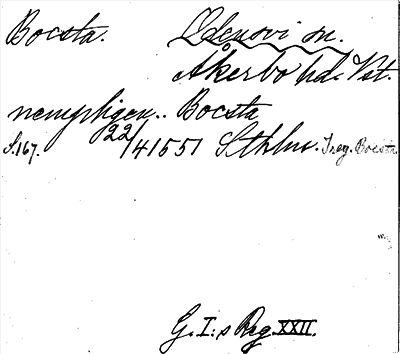 Bocsta. Odensvi sn.
Åkerbo hd. Vst.
nempligen.. Bocsta
S.167. 22/4 1551 Sthlm. I reg. Bocsta.
G. I:s Reg. XXII.